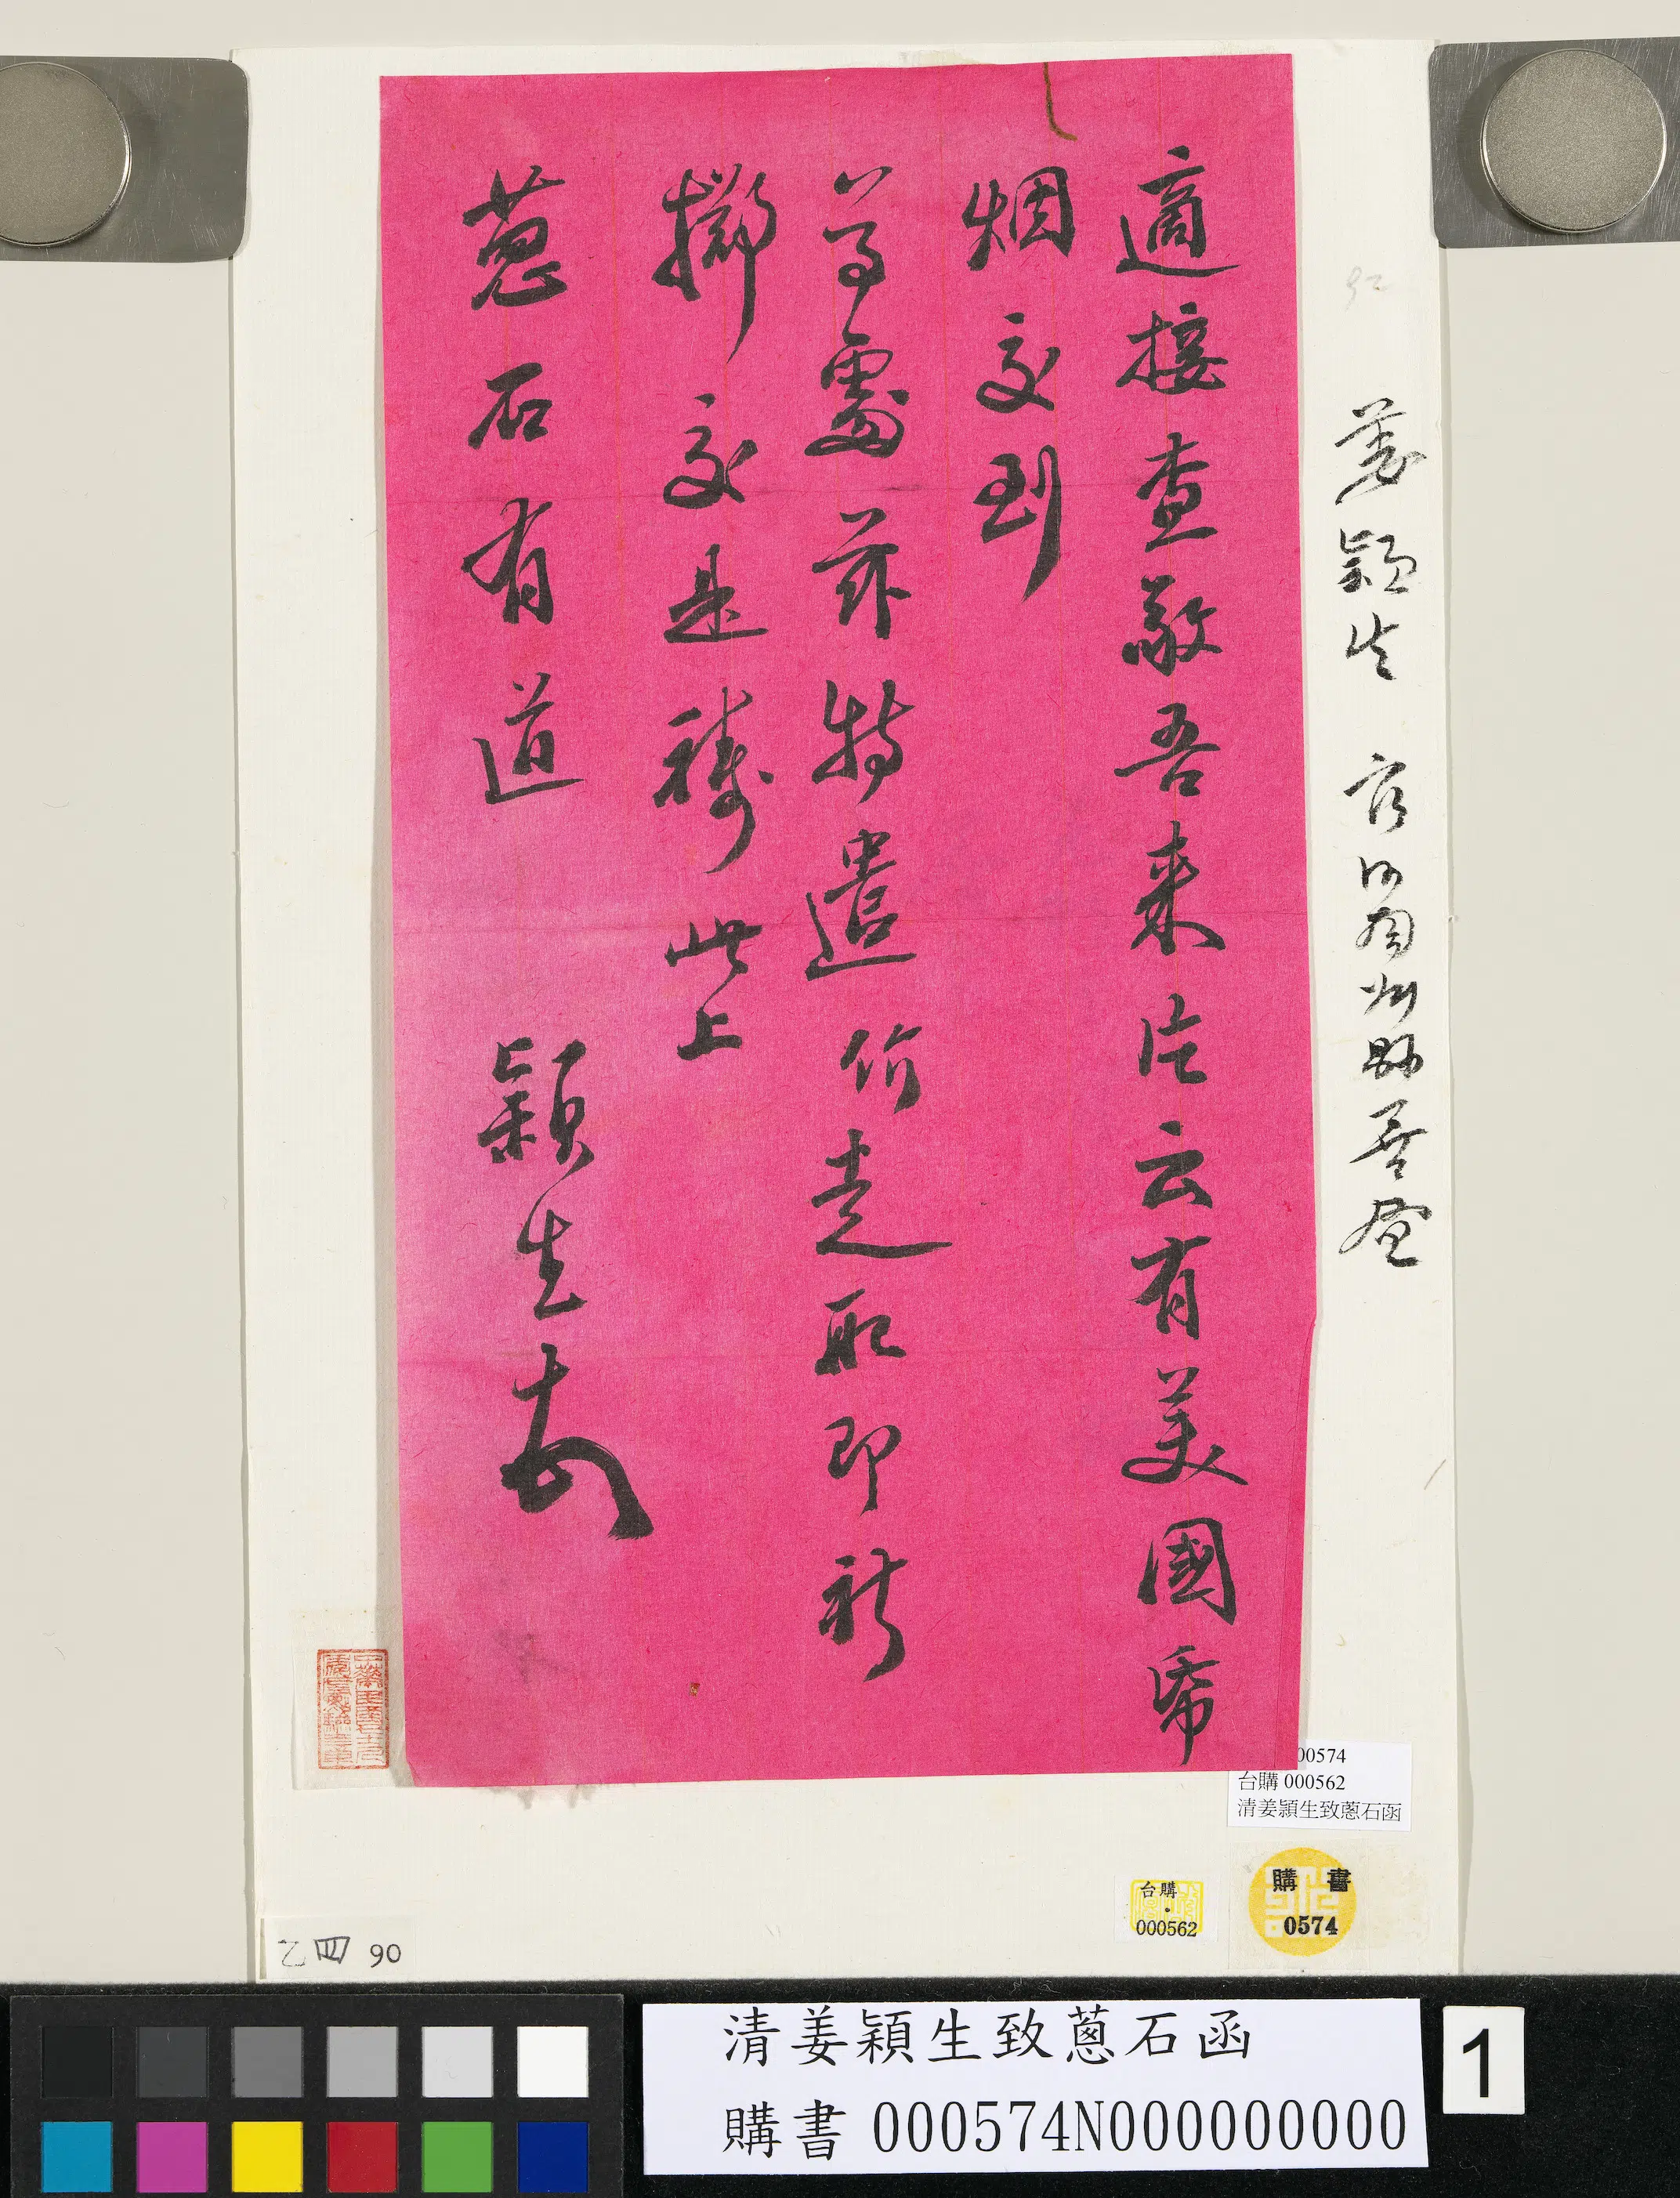 適接查敬吾來片云有美國紙
烟交到
尊處茲特遣价走取即祈
擲交是禱此上
蔥石有道
穎生頓
姜穎生
00574
台購 000562
清姜穎生致蔥石函
台購
000562
購書
0574
乙四 90
清姜穎生致蔥石函
購書 000574N000000000
1